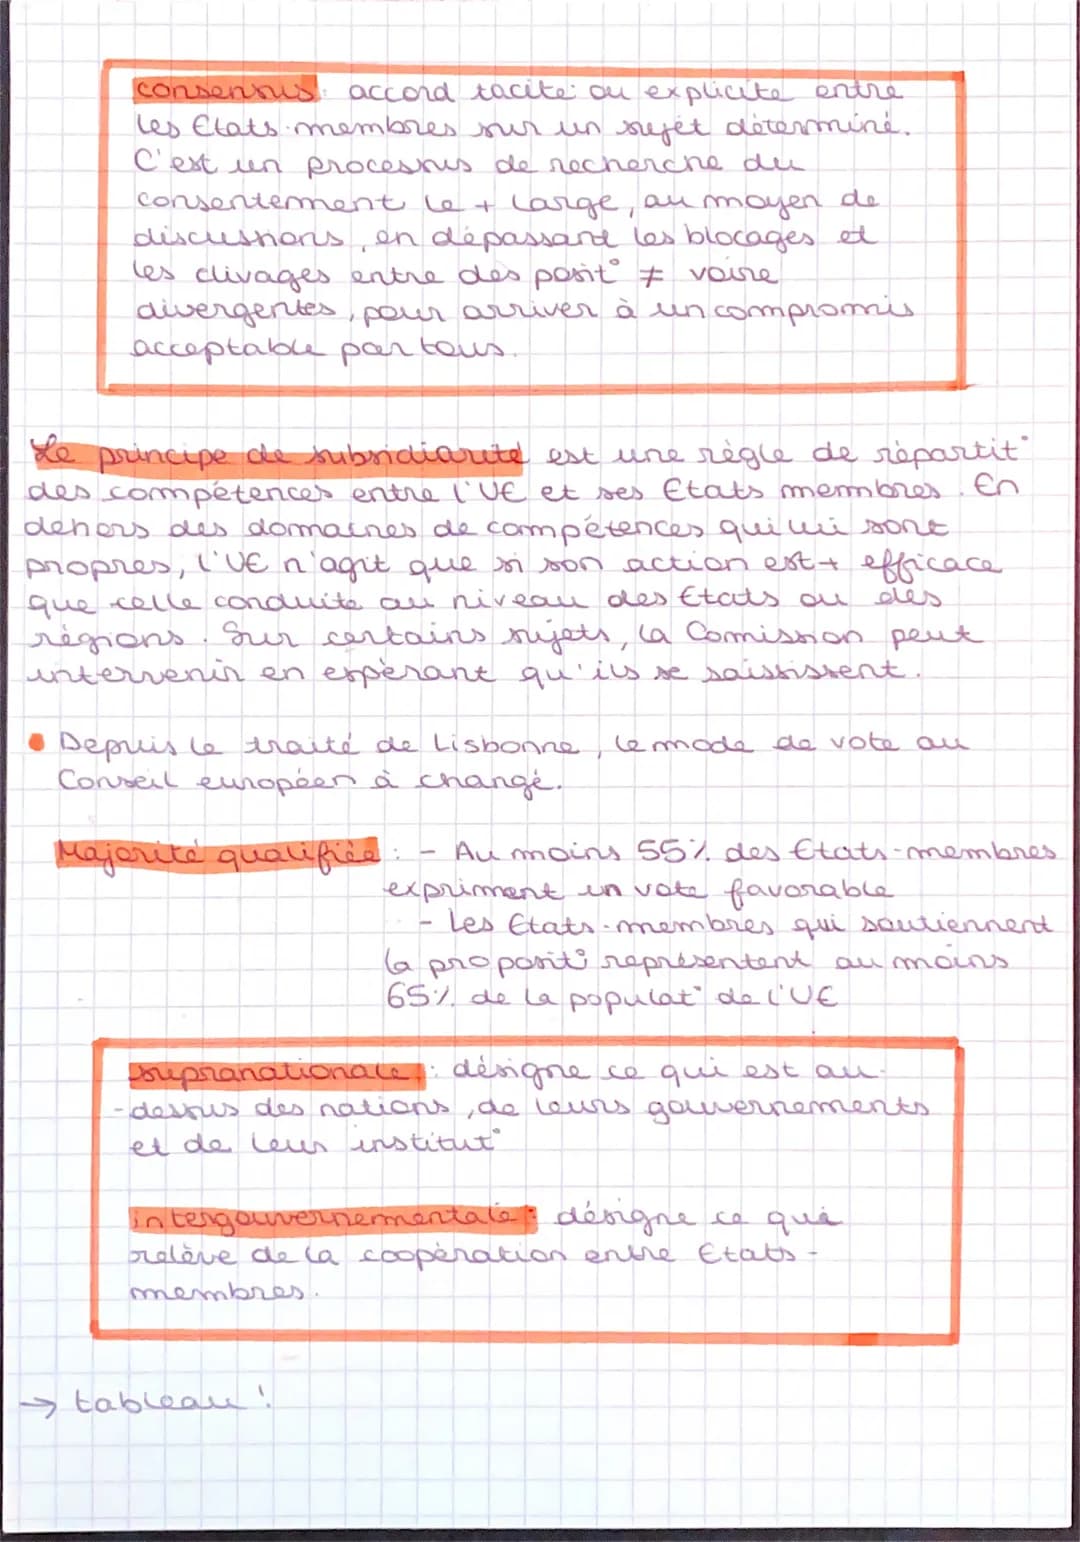 consensus: accord tacite ou explicite entre
les Etats-membres sur un sujet déterminé.
C'est un processus de recherche du
consentement le + large, au moyen de
discussions, en dépassant les blocages et
les clivages entre des posit° ≠ voire
divergentes, pour arriver à un compromis
acceptable par tous.
Le principe de subsidiarité est une règle de répartit°
des compétences entre l'UE et ses Etats membres. En
dehors des domaines de compétences qui lui sont
propres, l'UE n'agit que si son action est + efficace
que celle conduite au niveau des Etats ou des
régions. Sur certains sujets, la Comission peut
intervenir en espérant qu'ils se saississent.
• Depuis le traité de Lisbonne, le mode de vote au
Conseil européen à changé.
Majorité qualifiée : - Au moins 55% des Etats-membres
expriment un vote favorable
- Les Etats-membres qui soutiennent
la proposit° représentent au moins
65% de la populat° de l'UE
supranationale : désigne ce qui est au-
-dessus des nations, de leurs gouvernements
et de leur institut°
intergouvernementale : désigne ce qui
relève de la coopération entre Etats-
membres.
→ tableau !